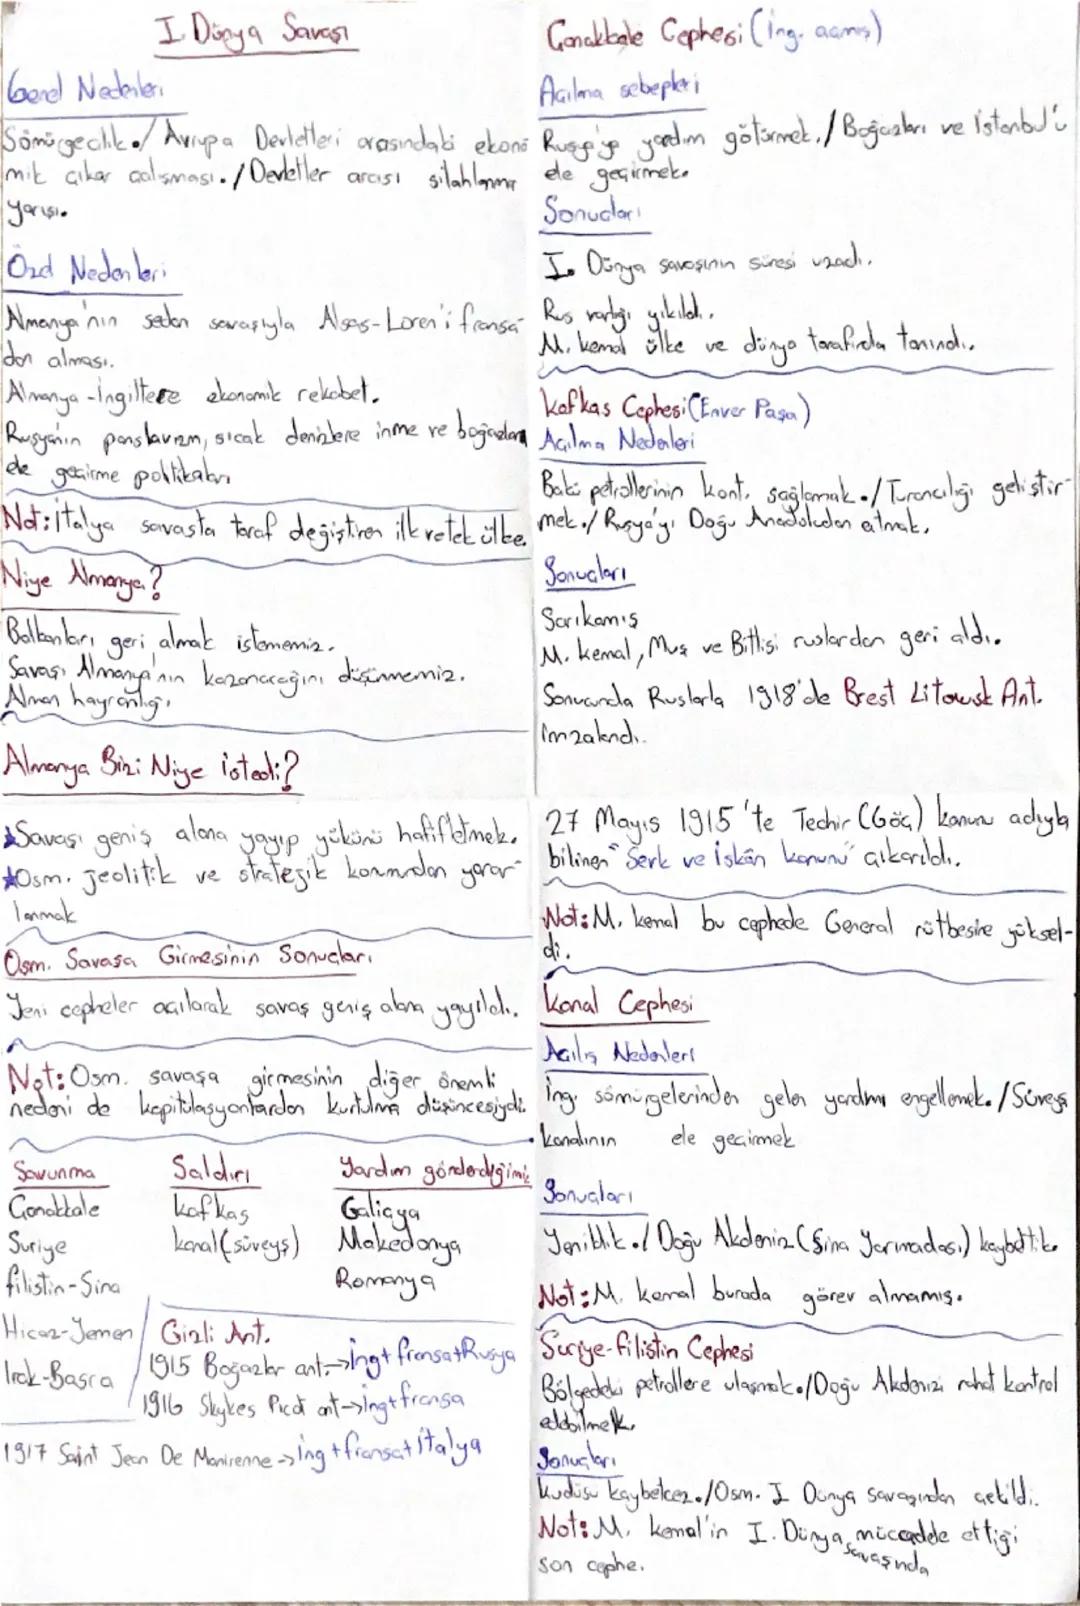 I. Dünya Savaşı
Genel Nedenleri
Sömürgecilik./ Avrupa Devletleri arasındaki ekono
mik çıkar çatışması./Devletler arası silahlanma
yarışı.
Özel Nedenleri
Almanya'nın sedan savaşıyla Alsas-Loren'i fransa
dan alması.
Almanya-İngiltere ekonomik rekabet.
Rusya'nın panslavizm, sıcak denizlere inme ve boğazları
ele geçirme politikaları
Not: İtalya savaşta taraf değiştiren ilk ve tek ülke.
Niye Almanya?
Balkanları geri almak istememiz.
Savaşı Almanya'nın kazanacağını düşünmemiz.
Alman hayranlığı.
Almanya Bizi Niye istedi?
★Savaşı geniş alana yayıp yükünü hafifletmek.
★Osm. jeolitik ve stratejik konumundan yarar
lanmak
Osm. Savaşa Girmesinin Sonuçları
Yeni cepheler açılarak savaş geniş alana yayıldı.
Not: Osm. savaşa girmesinin diğer önemli
nedeni de kapitülasyonlardan kurtulma düşüncesiydi.
Savunma Saldırı Yardım gönderdiğimiz
Çanakkale kafkas Galiçya
Suriye kanal(süveyş) Makedonya
filistin-Sina Romanya
Hicaz-Yemen
Irak-Basra
Gizli Ant.
1915 Boğazlar ant.->ing+fransa+Rusya
1916 Skykes Picot ant->ing+fransa
1917 Saint Jean De Manirenne->ing+fransa+italya
Çanakkale Cephesi (ing. açmış)
Açılma sebepleri
Rusya'ya yardım götürmek./Boğazları ve istanbul'u
ele geçirmek.
Sonuçları
I. Dünya savaşının süresi uzadı.
Rus varlığı yıkıldı.
M. kemal ülke ve dünya tarafında tanındı.
Kafkas Cephesi(Enver Paşa)
Açılma Nedenleri
Bakü petrollerinin kont. sağlamak./Turancılığı geliştir-
mek./Rusya'yı Doğu Anadoludan atmak.
Sonuçları
Sarıkamış
M. kemal, Muş ve Bitlisi ruslardan geri aldı.
Sonucunda Ruslarla 1918'de Brest Litowsk Ant.
imzalandı.
27 Mayıs 1915'te Techir (Göç) kanunu adıyla
bilinen "Serk ve iskân kanunu" çıkarıldı.
Not: M. kemal bu cephede General rütbesine yüksel-
di.
Kanal Cephesi
Açılış Nedenleri
ing. sömürgelerinden gelen yardımı engellemek./Süveyş
kanalının ele geçirmek
Sonuçları
Yenildik./Doğu Akdeniz (Sina Yarımadası) kaybettik.
Not: M. kemal burada görev almamış.
Suriye-filistin Cephesi
Bölgedeki petrollere ulaşmak./Doğu Akdenizi rahat kontrol
edebilmek.
Sonuçları
kudüsü kaybetcez./Osm. I Dünya savaşından çekildi.
Not: M. kemal'in I. Dünya savaşında mücadele ettiği
son cephe.